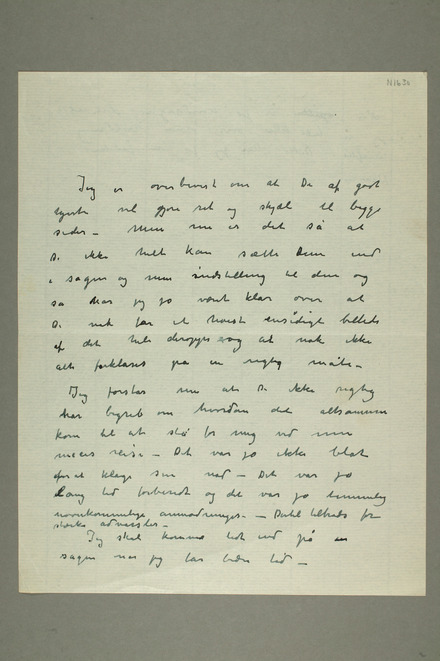 N1630
Jeg er overbevist om at De af godt
hjerte vil gjøre ret og skjæl til begge
sider – Men nu er det så at
De ikke helt kan sætte Dem ind
i sagen og min indstilling til den og
så har jeg jo vært klar over at
De nok får et høist ensidigt billede
af det hele deroppe og at nok ikke
alt forklares på en rigtig måte –
Jeg forstår nu at De ikke rigtig
har begreb om hvordan det altsammen
kom til at stå for mig ved min
reise – Det var jo ikke blot
for at klage min nød – Det var jo
lang tid forberedt og det var jo temmelig
anmodninger – Dertil for
stærke advarsler –
Jeg skal komme lidt ind på
sagen når jeg får bedre tid –